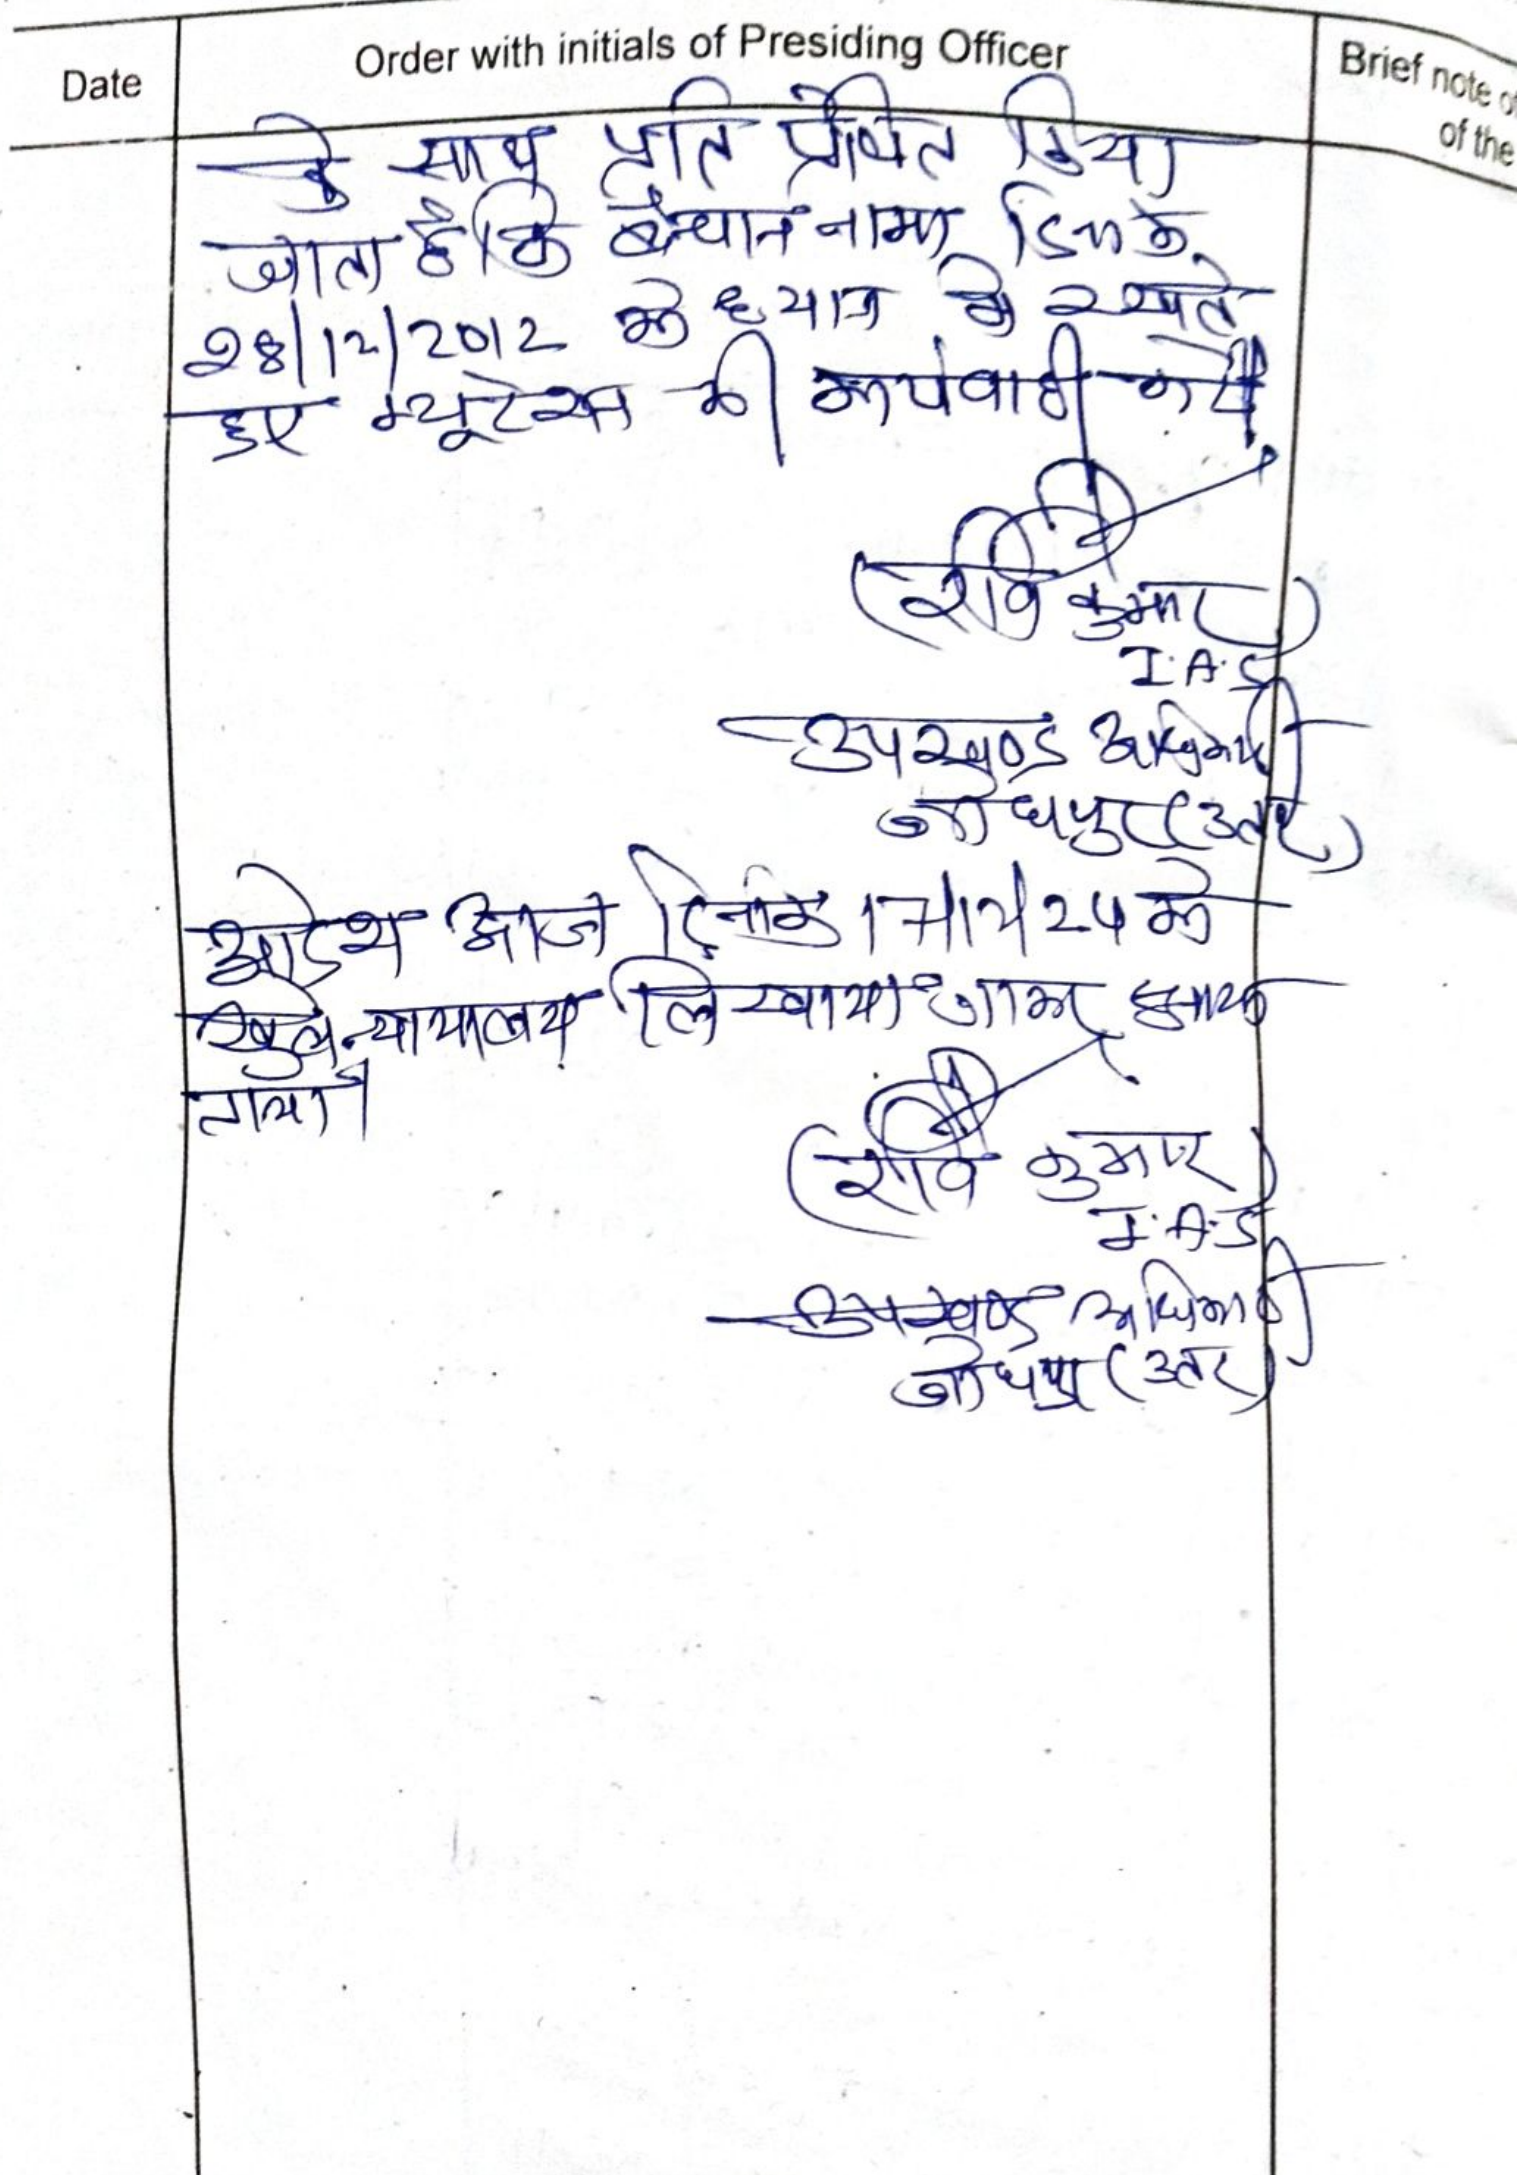 Date
Order with initials of Presiding Officer
Brief note of
of the
के साथ प्रति प्रेषित किया
जाता है कि बेचान नामा दिनांक
28/12/2012 को ध्यान में रखते
हुए म्यूटेशन की कार्यवाही करें
(रवि कुमार)
I.A.S
उपखण्ड अधिकारी
जोधपुर (उतर)
आदेश आज दिनांक 17/12/24 को
खुले न्यायालय लिखाया जाकर सुनाया
गया।
(रवि कुमार)
I.A.S
उपखण्ड अधिकारी
जोधपुर (उतर)